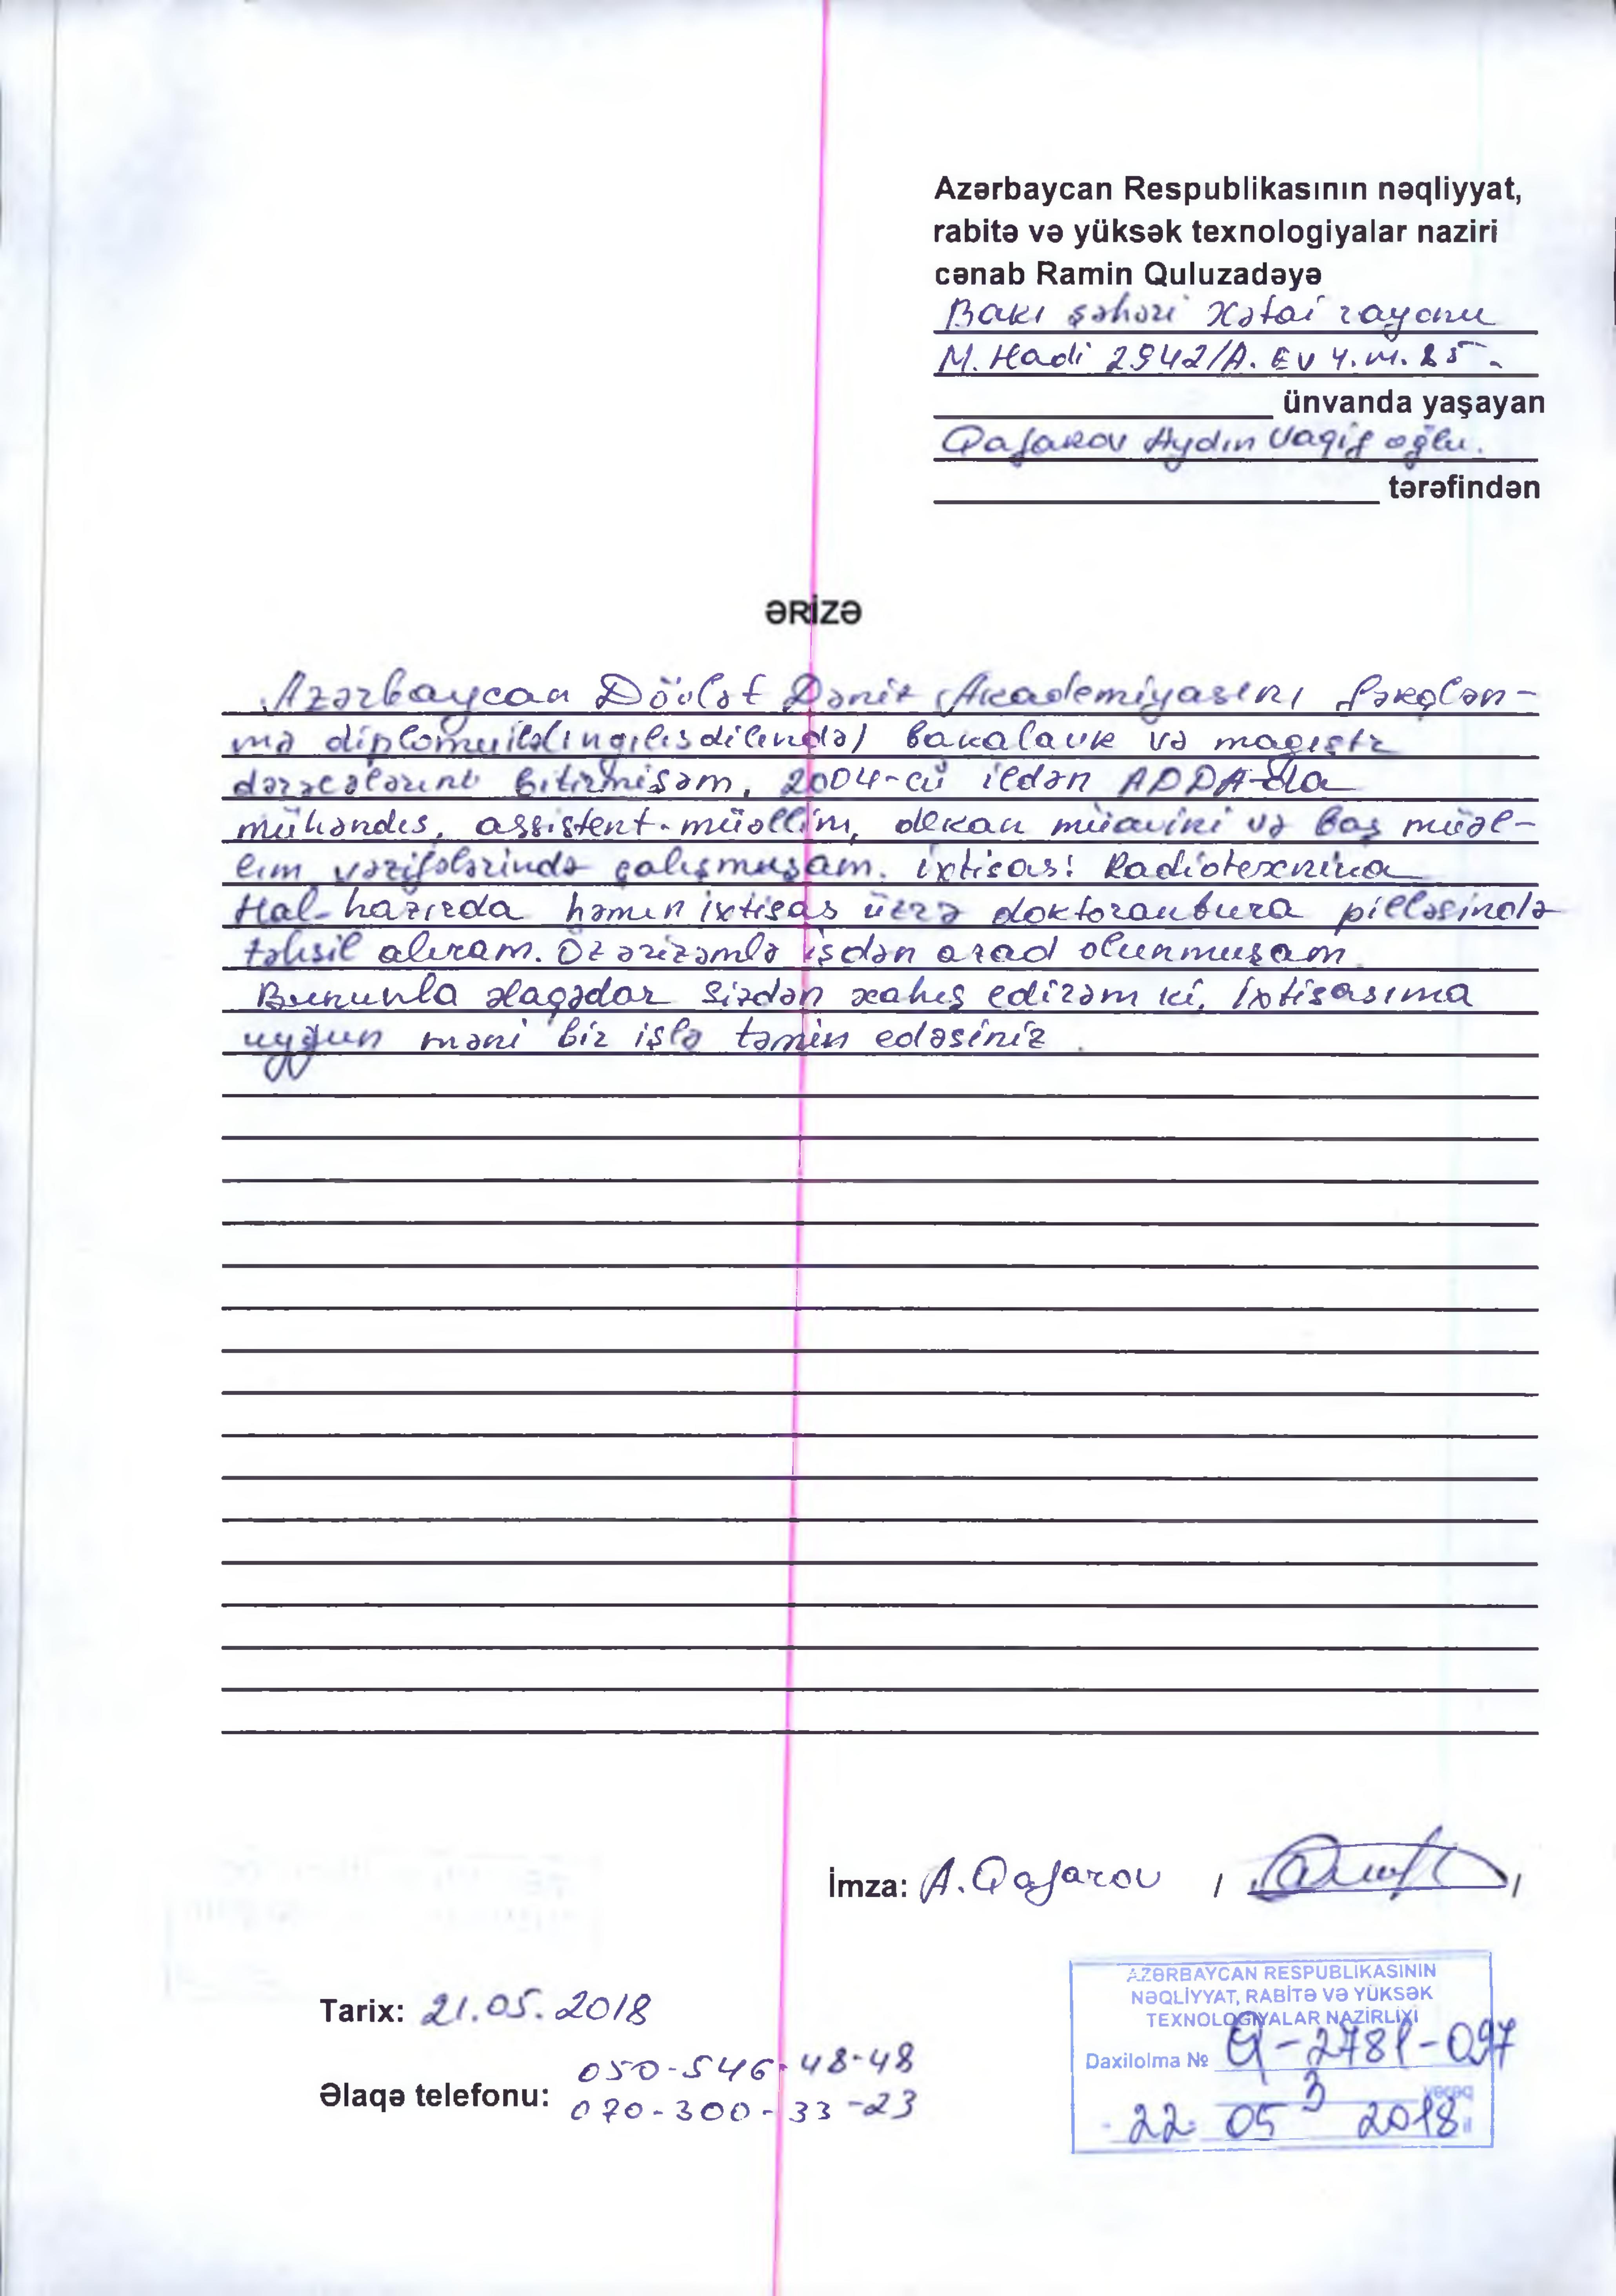 Azərbaycan Respublikasının nəqliyyat,
rabitə və yüksək texnologiyalar naziri
cənab Ramin Quluzadəyə
Bakı şəhəri Xətai rayonu
M. Hadi 2942/A. Ev 4. m. 85
ünvanda yaşayan
Qafarov Aydın Vaqif oğlu.
tərəfindən
ƏRİZƏ
Azərbaycan Dövlət Dəniz Akademiyasını fərqlən-
mə diplomu ilə (ingilis dilində) bakalavr və magistr
dərəcələrini bitirmişəm. 2004-cü ildən ADDA-da
mühəndis, assistent-müəllim, dekan müavini və baş müəl-
lim vəzifələrində çalışmışam. ixtisas: Radiotexnika
Hal-hazırda həmin ixtisas üzrə doktorantura pilləsində
təhsil alıram. Öz ərizəmlə işdən azad olunmuşam
Bununla əlaqədar Sizdən xahiş edirəm ki, ixtisasıma
uyğun məni bir işlə təmin edəsiniz.
İmza: A. Qafarov / /
Tarix: 21.05.2018
Əlaqə telefonu: 050-546-48-48
070-300-33-23
AZƏRBAYCAN RESPUBLİKASININ
NƏQLİYYAT, RABİTƏ VƏ YÜKSƏK
TEXNOLOGİYALAR NAZİRLİYİ
Daxilolma № Q-2781-097
3 vərəq
22 05 2018 il